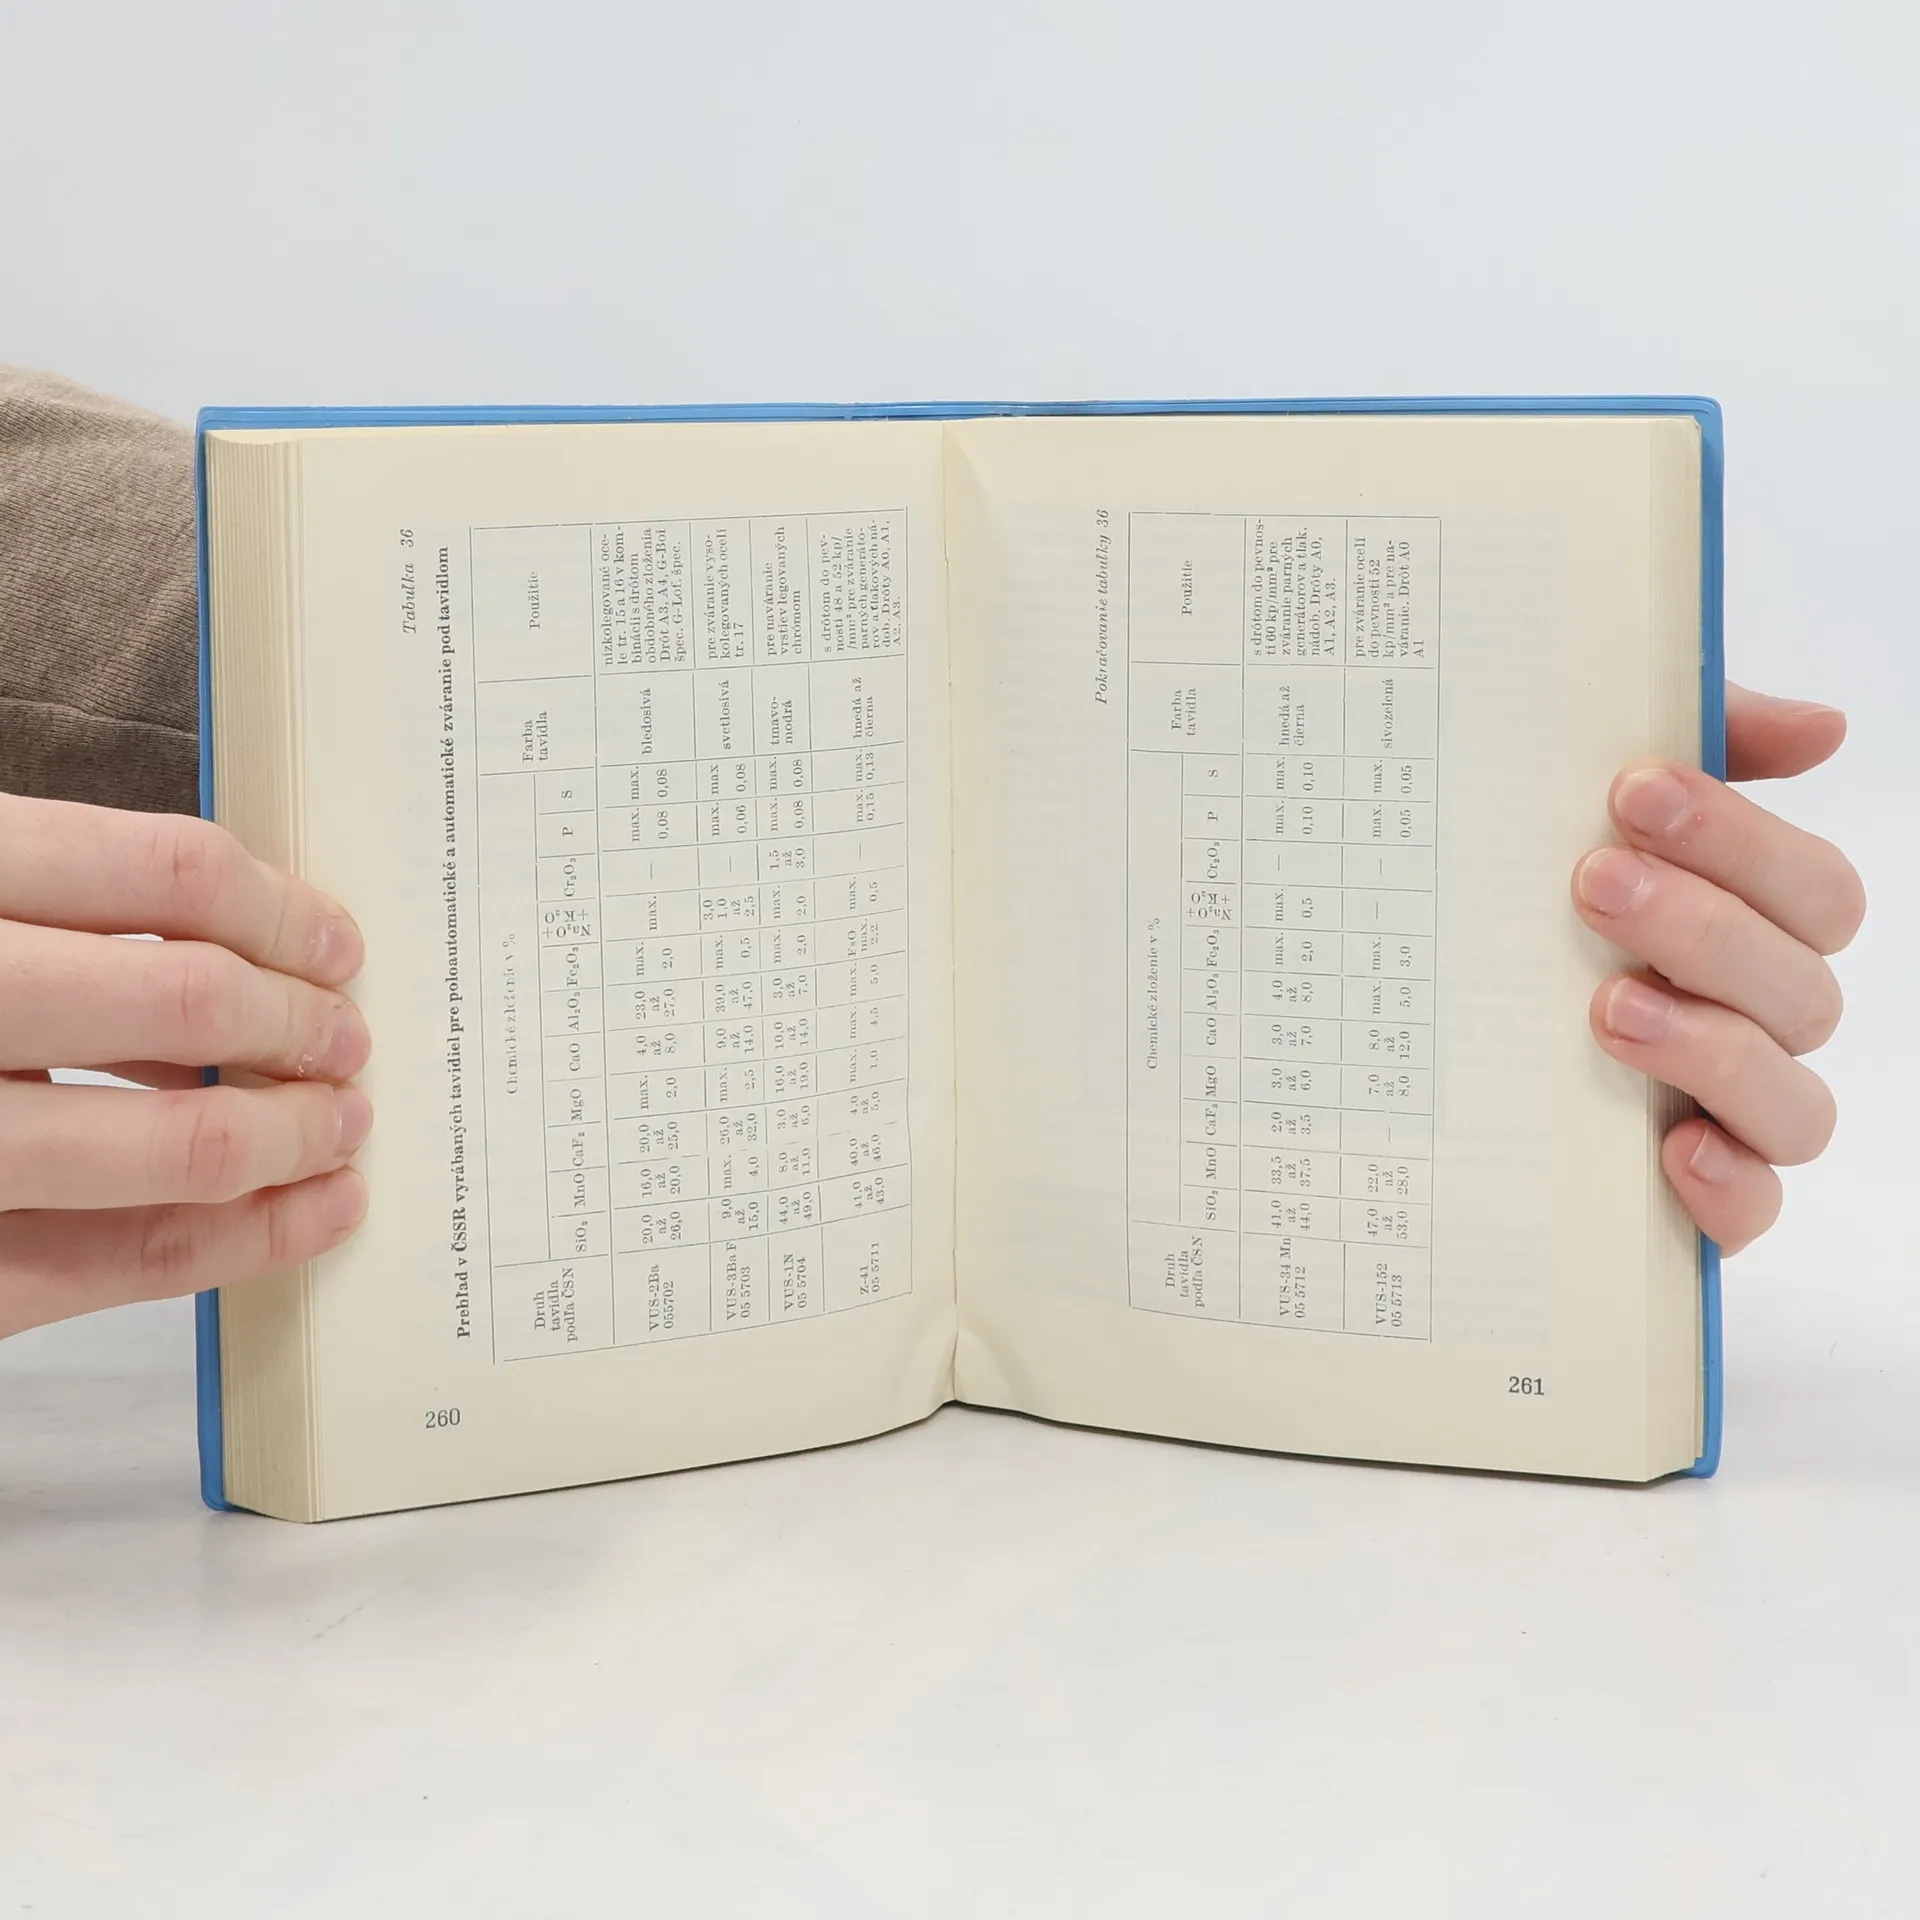 Tabulka 36
Prehľad v ČSSR vyrábaných tavidiel pre poloautomatické a automatické zváranie pod tavidlom
Druh
tavidla
podľa ČSN
Chemické zloženie v %
SiO₂ MnO CaF₂ MgO CaO Al₂O₃ Fe₂O₃ Na₂O + K₂O Cr₂O₃ P S
Farba
tavidla
Použitie
VUS-2Ba
055702
20,0 až 26,0
16,0 až 20,0
20,0 až 25,0
max. 2,0
4,0 až 8,0
23,0 až 27,0
max. 2,0
max. 3,0
—
max. 0,08
max. 0,08
bledosivá
nízkolegované oce-
le tr. 15 a 16 v kom-
binácii s drôtom
obdobného zloženia
Drôt A3, A4, G-Boi
špec. G-Lof. špec.
VUS-3Ba F
05 5703
9,0 až 15,0
max. 4,0
26,0 až 32,0
max. 2,5
9,0 až 14,0
39,0 až 47,0
max. 0,5
1,0 až 2,5
—
max. 0,06
max 0,08
svetlosivá
pre zváranie vyso-
kolegovaných ocelí
tr. 17
VUS-1N
05 5704
44,0 až 49,0
8,0 až 11,0
3,0 až 6,0
16,0 až 19,0
10,0 až 14,0
3,0 až 7,0
max. 2,0
max. 2,0
1,5 až 3,0
max. 0,08
max. 0,08
tmavo-
modrá
pre naváranie
vrstiev legovaných
chrómom
Z-41
05 5711
41,0 až 43,0
40,0 až 46,0
4,0 až 5,0
max. 1,0
max. 4,5
max. 5,0
FeO max. 2,2
max. 0,5
—
max. 0,15
max. 0,13
hnedá až
čierna
s drôtom do pev-
nosti 48 a 52 kp/
/mm² pre zváranie
parných generáto-
rov a tlakových ná-
dob. Drôty A0, A1,
A2, A3.
260
Pokračovanie tabuľky 36
Druh
tavidla
podľa ČSN
Chemické zloženie v %
SiO₂ MnO CaF₂ MgO CaO Al₂O₃ Fe₂O₃ Na₂O + K₂O Cr₂O₃ P S
Farba
tavidla
Použitie
VUS-34 Mn
05 5712
41,0 až 44,0
33,5 až 37,5
2,0 až 3,5
3,0 až 6,0
3,0 až 7,0
4,0 až 8,0
max. 2,0
max. 0,5
—
max. 0,10
max. 0,10
hnedá až
čierna
s drôtom do pevnos-
ti 60 kp/mm² pre
zváranie parných
generátorov a tlak.
nádob. Drôty A0,
A1, A2, A3.
VUS-152
05 5713
47,0 až 53,0
22,0 až 28,0
—
7,0 až 8,0
8,0 až 12,0
max. 5,0
max. 3,0
—
—
max. 0,05
max. 0,05
sivozelená
pre zváranie ocelí
do pevnosti 52
kp/mm² a pre na-
váranie. Drôt A0
A1
261